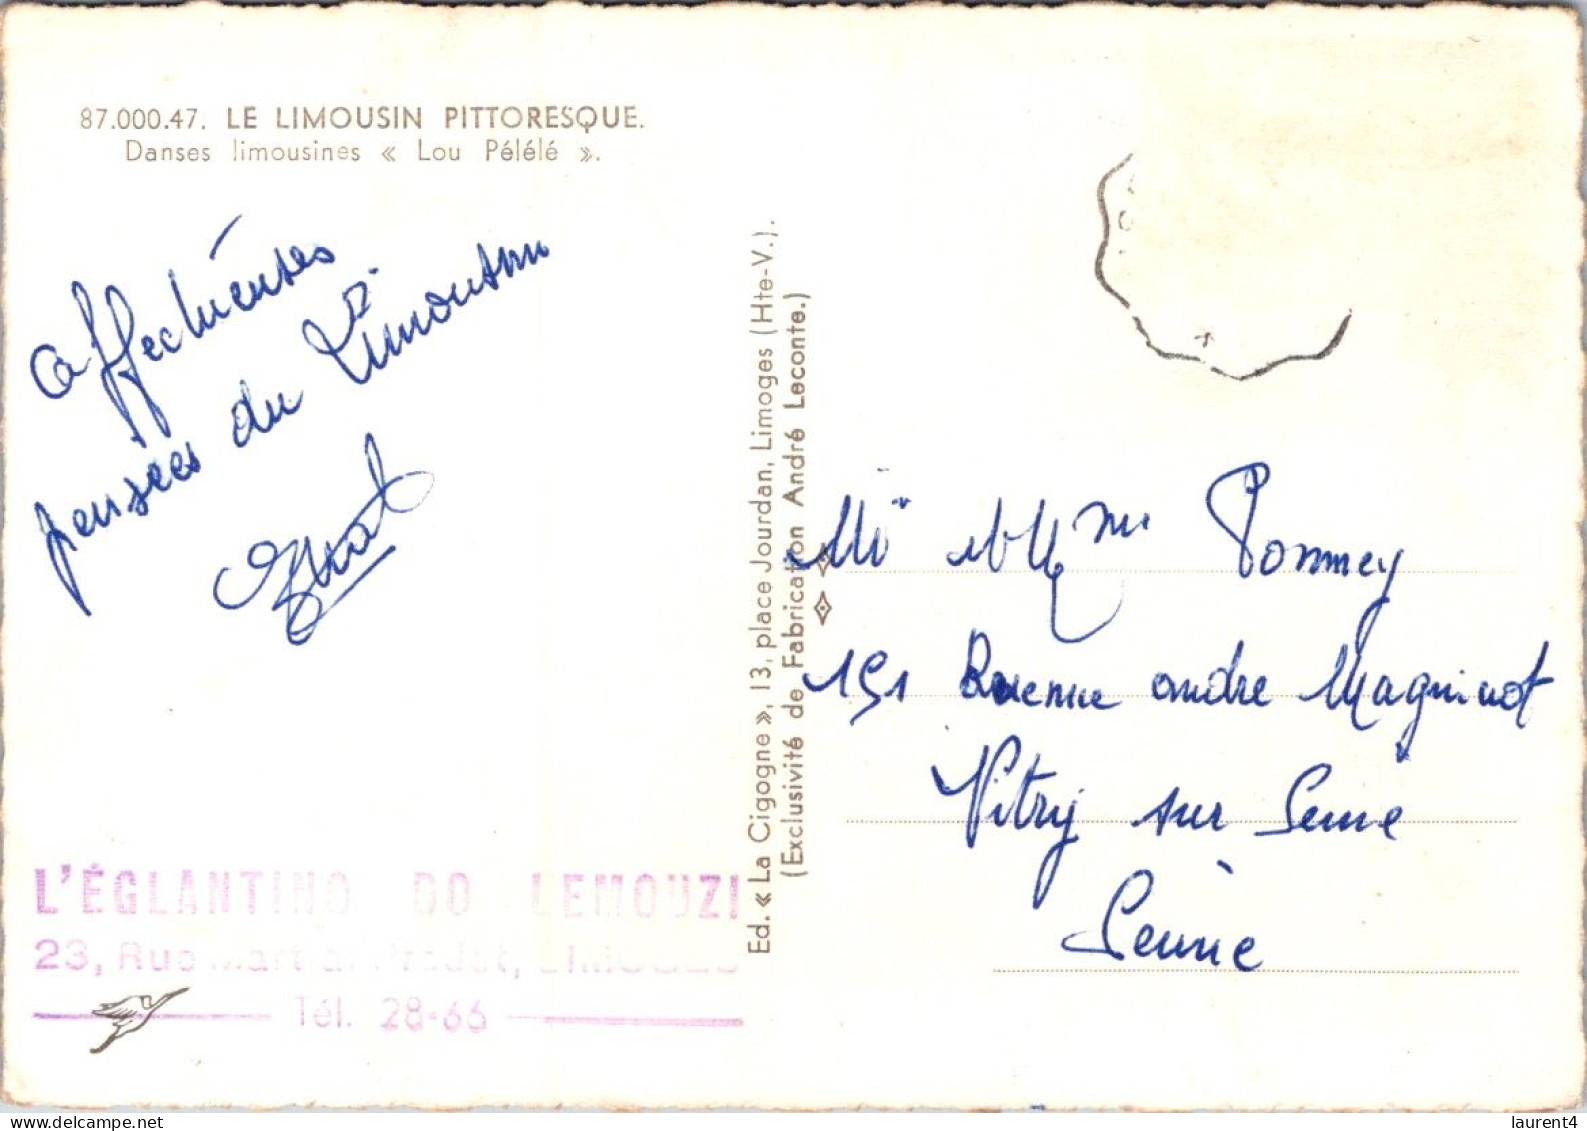 87.000.47. LE LIMOUSIN PITTORESQUE.
Danses limousines « Lou Pélélé ».
affectueuses
pensées du Limousin
Ed. « La Cigogne », 13, place Jourdan, Limoges (Hte-V.).
(Exclusivité de Fabrication André Leconte.)
Mr et Mme Pommey
191 Avenue andre Maginot
Vitry sur Seine
Seine
L'ÉGLANTINO DO LEMOUZI
23, Rue Martial-Pradet, LIMOGES
Tél. 28-66
laurent4